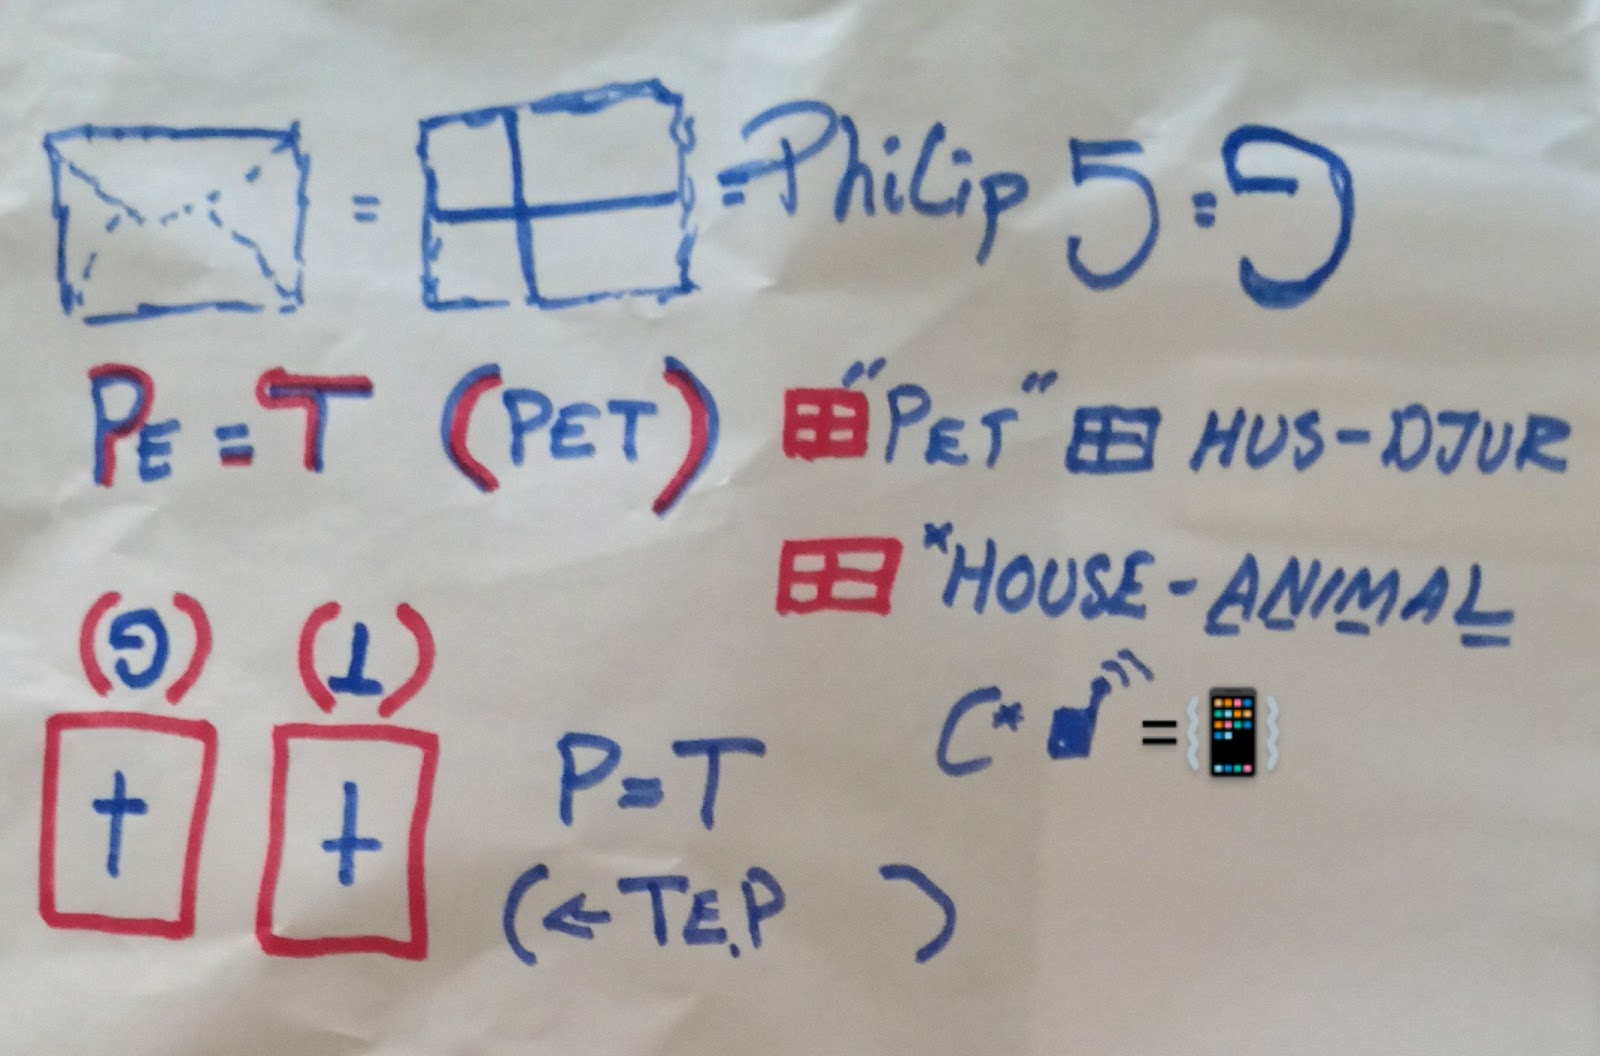 = = Philip 5 = G
PE = T (PET) "PET" HUS-DJUR
*HOUSE-ANIMAL
(G) (T)
C* =
P=T
(←TE,P )